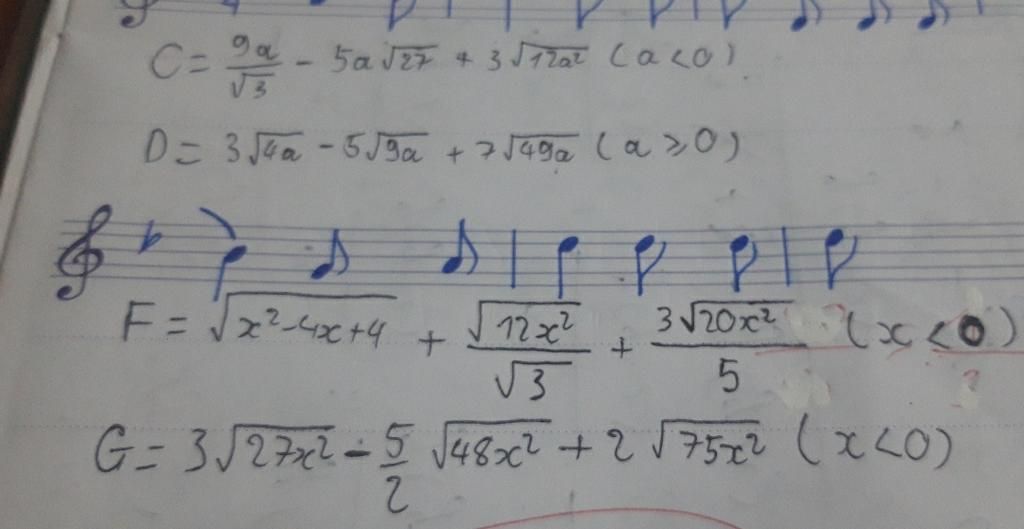 C = 9a/√3 - 5a√27 + 3√12a² (a<0)
D = 3√4a - 5√9a + 7√49a (a ≥ 0)
F = √x²-4x+4 + √12x²/√3 + 3√20x²/5 (x<0)
?
G = 3√27x² - 5/2 √48x² + 2√75x² (x<0)